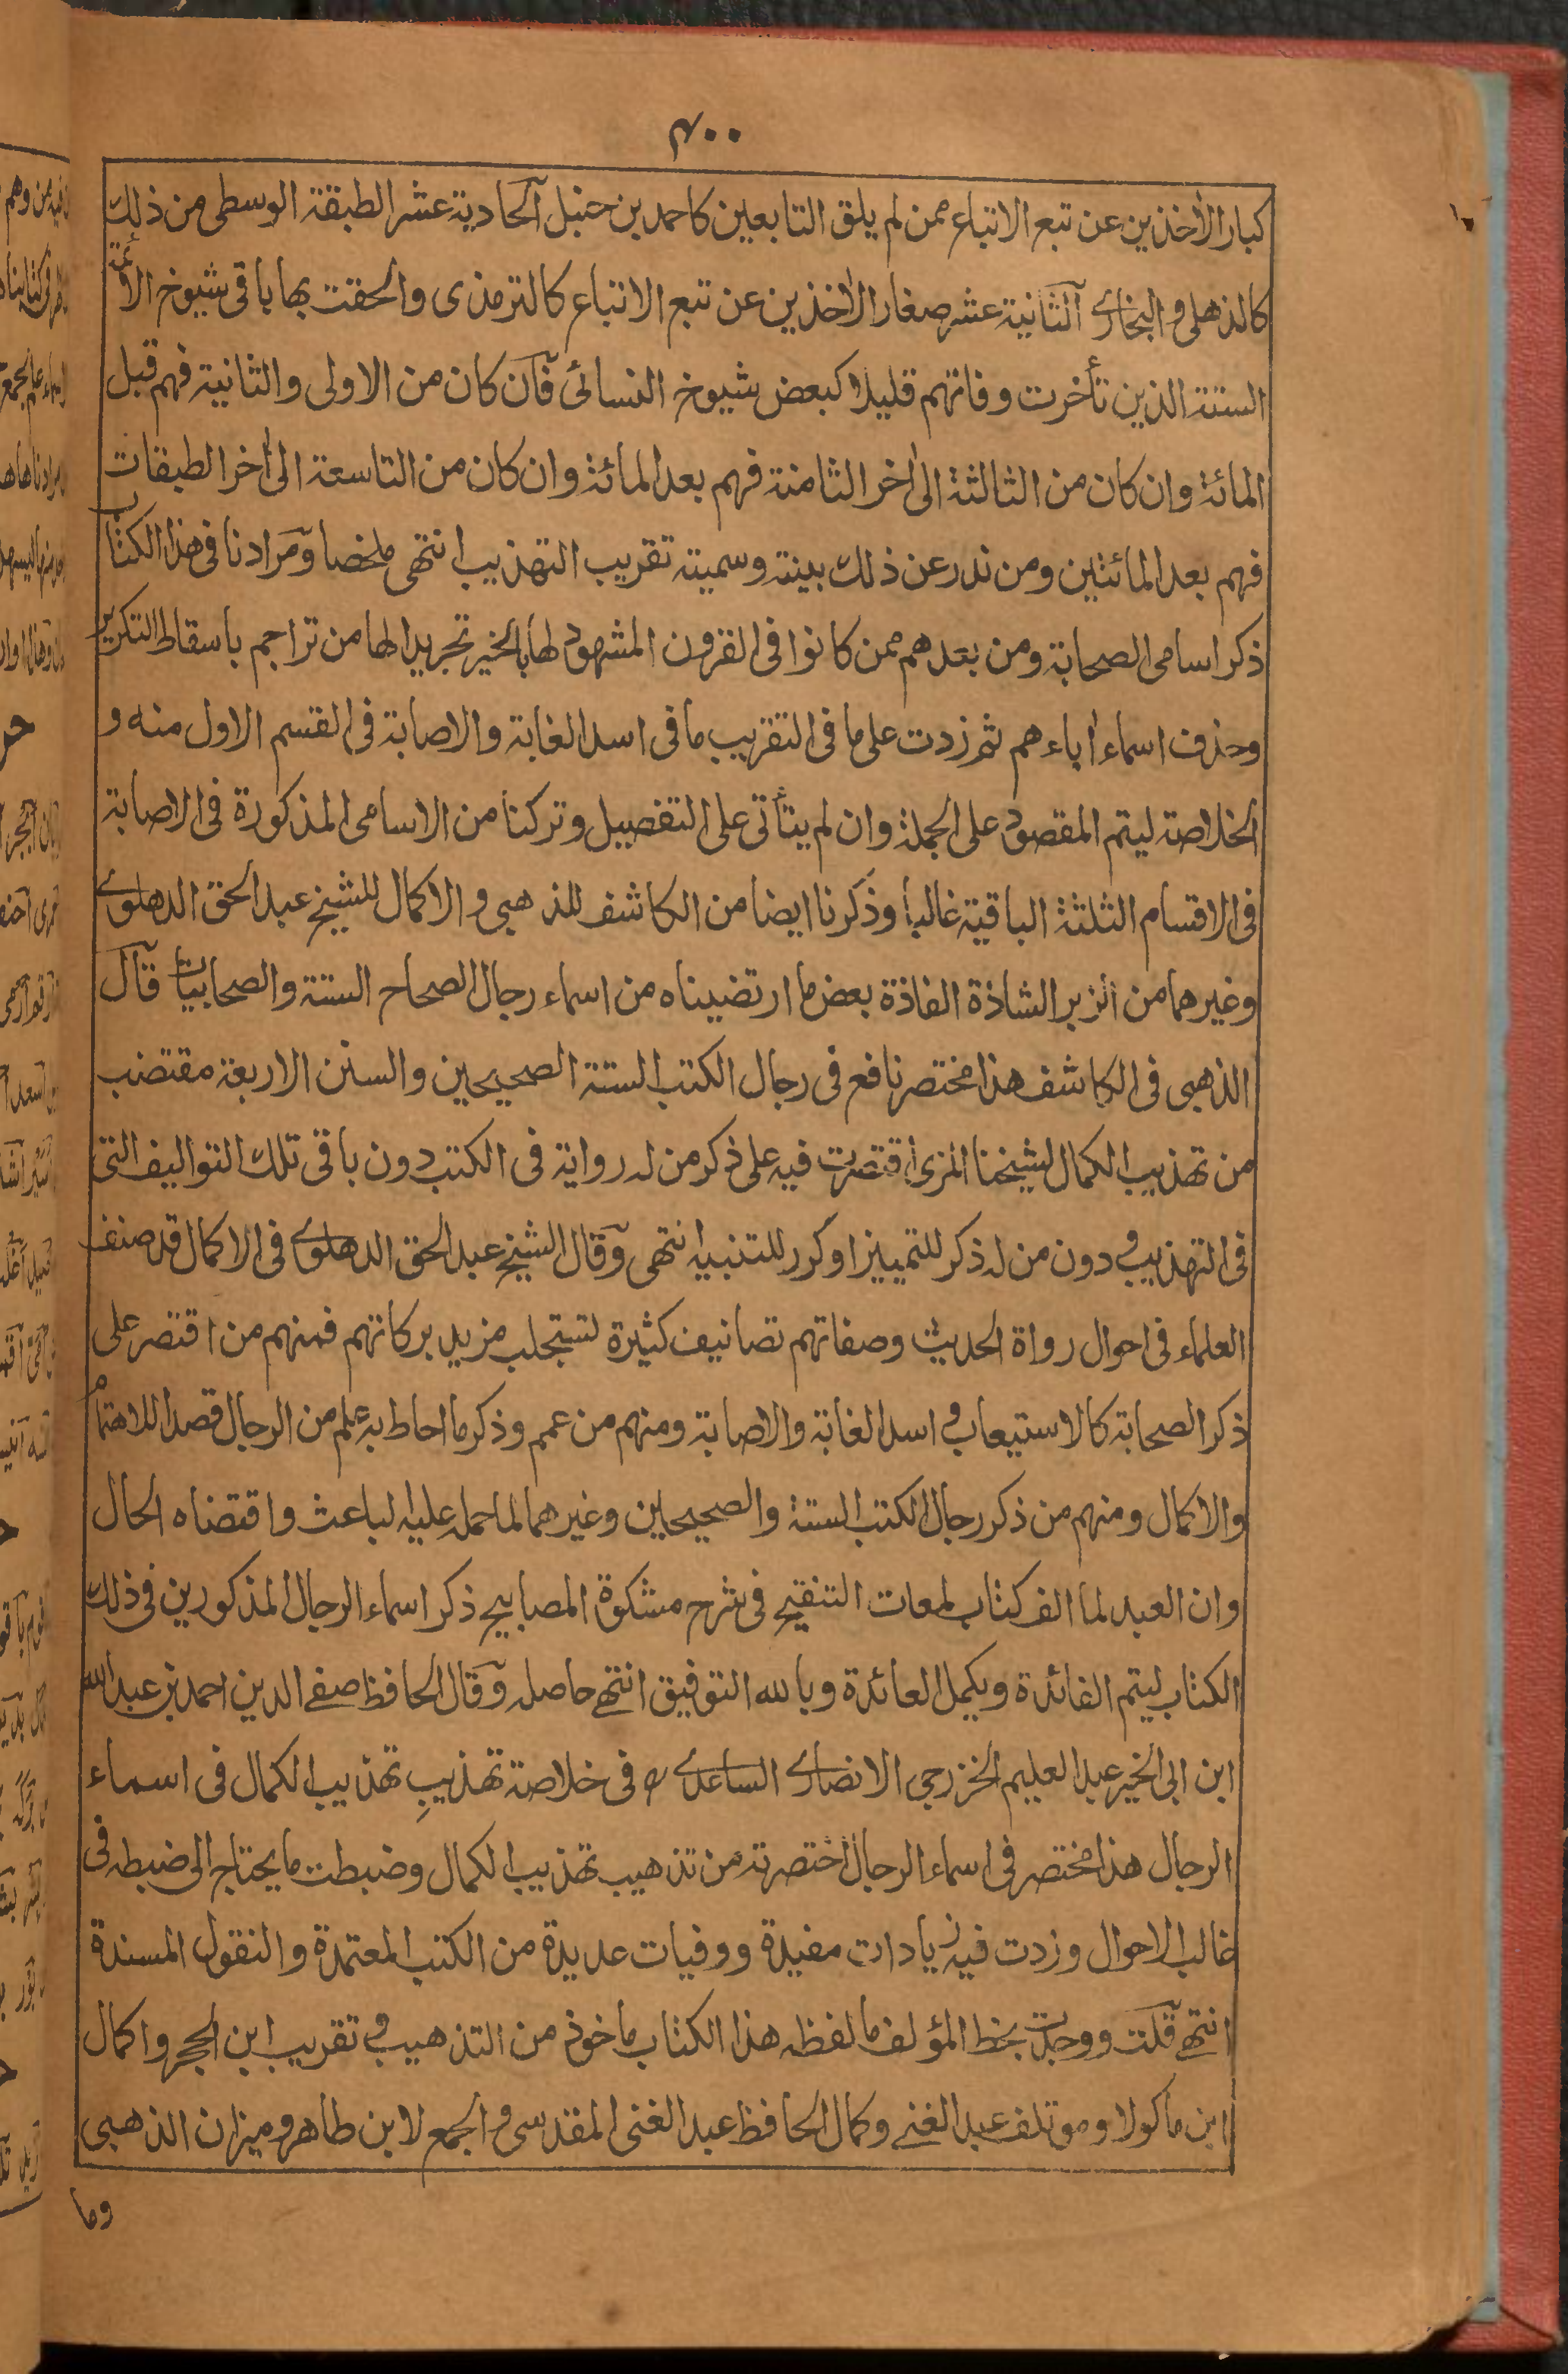 ۴۰۰
كبار الأخذين عن تبع الاتباع ممن لم يلق التابعين كاحمد بن حنبل آلحادية عشر الطبقة الوسطى من ذلك
كالذهلى و البخارى آلثانية عشر صغار الأخذين عن تبع الاتباع كالترمذى والحقت بها باقى شيوخ الأئمة
الستة الذين تأخرت وفاتهم قليلا كبعض شيوخ النسائى فآن كان من الاولى والثانية فهم قبل
المائة وان كان من الثالثة الى أخر الثامنة فهم بعد المائة وان كان من التاسعة الى أخر الطبقات
فهم بعد المائتين ومن ندر عن ذلك بينته وسميته تقريب التهذيب انتهى ملخصا ومرادنا فى هذا الكتاب
ذكر اسامى الصحابة ومن بعدهم ممن كانوا فى القرون المشهود لها بالخير تجريدا لها من تراجم باسقاط التكرير
وحذف اسماء أباءهم ثم زدت على ما فى التقريب ما فى اسد الغابة والاصابة فى القسم الاول منه و
الخلاصة ليتم المقصود على الجملة وان لم يتأتى على التفصيل وتركنا من الاسامى المذكورة فى الاصابة
فى الاقسام الثلثة الباقية غالبا وذكرنا ايضا من الكاشف للذهبى والاكمال للشيخ عبد الحق الدهلوى
وغيرهما من الزبر الشاذة الفاذة بعض ما ارتضيناه من اسماء رجال الصحاح الستة والصحابيات قآل
الذهبى فى الكاشف هذا مختصر نافع فى رجال الكتب الستة الصحيحين والسنن الاربعة مقتضب
من تهذيب الكمال لشيخنا المزى اقتصرت فيه على ذكر من له رواية فى الكتب دون باقى تلك التواليف التى
فى التهذيب و دون من له ذكر للتمييز او كرر للتنبيه انتهى وقال الشيخ عبد الحق الدهلوى فى الاكمال قد صنف
العلماء فى احوال رواة الحديث وصفاتهم تصانيف كثيرة لتستجلب مزيد بركاتهم فمنهم من اقتصر على
ذكر الصحابة كالاستيعاب و اسد الغابة والاصابة ومنهم من عمم وذكر ما احاط به علم من الرجال قصدا للاهتمام
والاكمال ومنهم من ذكر رجال الكتب الستة والصحيحين وغيرهما لما حمله عليه الباعث واقتضاه الحال
وان العبد لما الف كتاب لمعات التنقيح فى شرح مشكوة المصابيح ذكر اسماء الرجال المذكورين فى ذلك
الكتاب ليتم الفائدة ويكمل العائدة وبالله التوفيق انتهى حاصله وقال الحافظ صفى الدين احمد بن عبد الله
ابن ابى الخير عبد العليم الخزرجى الانصارى الساعدى رح فى خلاصة تهذيب تهذيب الكمال فى اسماء
الرجال هذا مختصر فى اسماء الرجال اختصرته من تذهيب تهذيب الكمال وضبطت ما يحتاج الى ضبطه فى
غالب الاحوال وزدت فيه زيادات مفيدة ووفيات عديدة من الكتب المعتمدة والنقول المسندة
انتهى قلت ووجدت بخط المؤلف ما لفظه هذا الكتاب ماخوذ من التذهيب و تقريب ابن الحجر واكمال
ابن ماكولا وموتلف عبد الغنى وكمال الحافظ عبد الغنى المقدسى و الجمع لابن طاهر وميزان الذهبى
وما